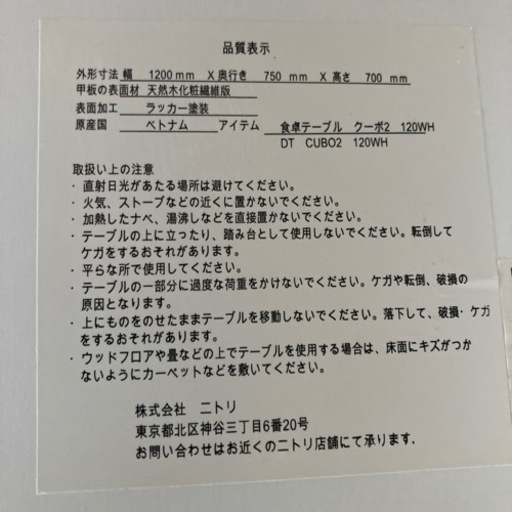 品質表示
外形寸法 幅 1200mm X 奥行き 750 mm X 高さ 700 mm
甲板の表面材 天然木化粧繊維版
表面加工 ラッカー塗装
原産国 ベトナム アイテム 食卓テーブル クーボ2 120WH
DT CUBO2 120WH
取扱い上の注意
・ 直射日光があたる場所は避けてください。
・ 火気、ストーブなどの近くに置かないでください。
・ 加熱したナベ、湯沸しなどを直接置かないでください。
・ テーブルの上に立ったり、踏み台として使用しないでください。転倒して
ケガをするおそれがあります。
・ 平らな所で使用してください。
・ テーブルの一部分に過度な荷重をかけないでください。ケガや転倒、破損の
原因となります。
・ 上にものをのせたままテーブルを移動しないでください。落下して、破損・ケガ
をするおそれがあります。
・ ウッドフロアや畳などの上でテーブルを使用する場合は、床面にキズがつか
ないようにカーペットなどを敷いてください。
株式会社 ニトリ
東京都北区神谷三丁目6番20号
お問い合わせはお近くのニトリ店舗にて承ります.